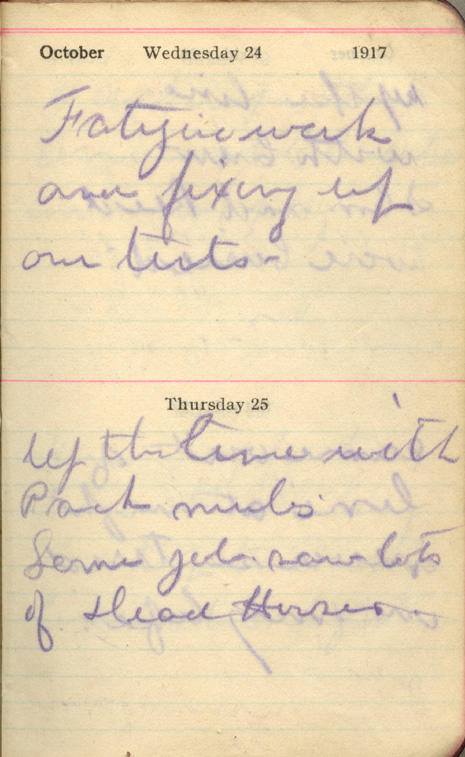 October Wednesday 24 1917
Fatigue work
and fixing up
our tents
Thursday 25
Up the line with
Pack mules
Some job saw lots
of dead Horses